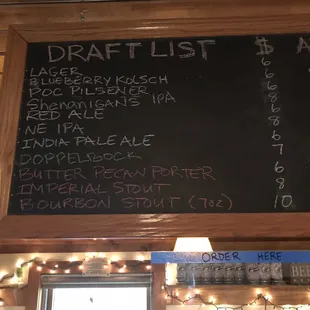 DRAFT LIST $ A
LAGER 6
BLUEBERRY KOLSCH 6
POC PILSENER 6
SHENANIGANS IPA 8
RED ALE 6
NE IPA 8
INDIA PALE ALE 6
DOPPELBOCK 7
BUTTER PECAN PORTER 6
IMPERIAL STOUT 8
BOURBON STOUT (7oz) 10
ORDER HERE